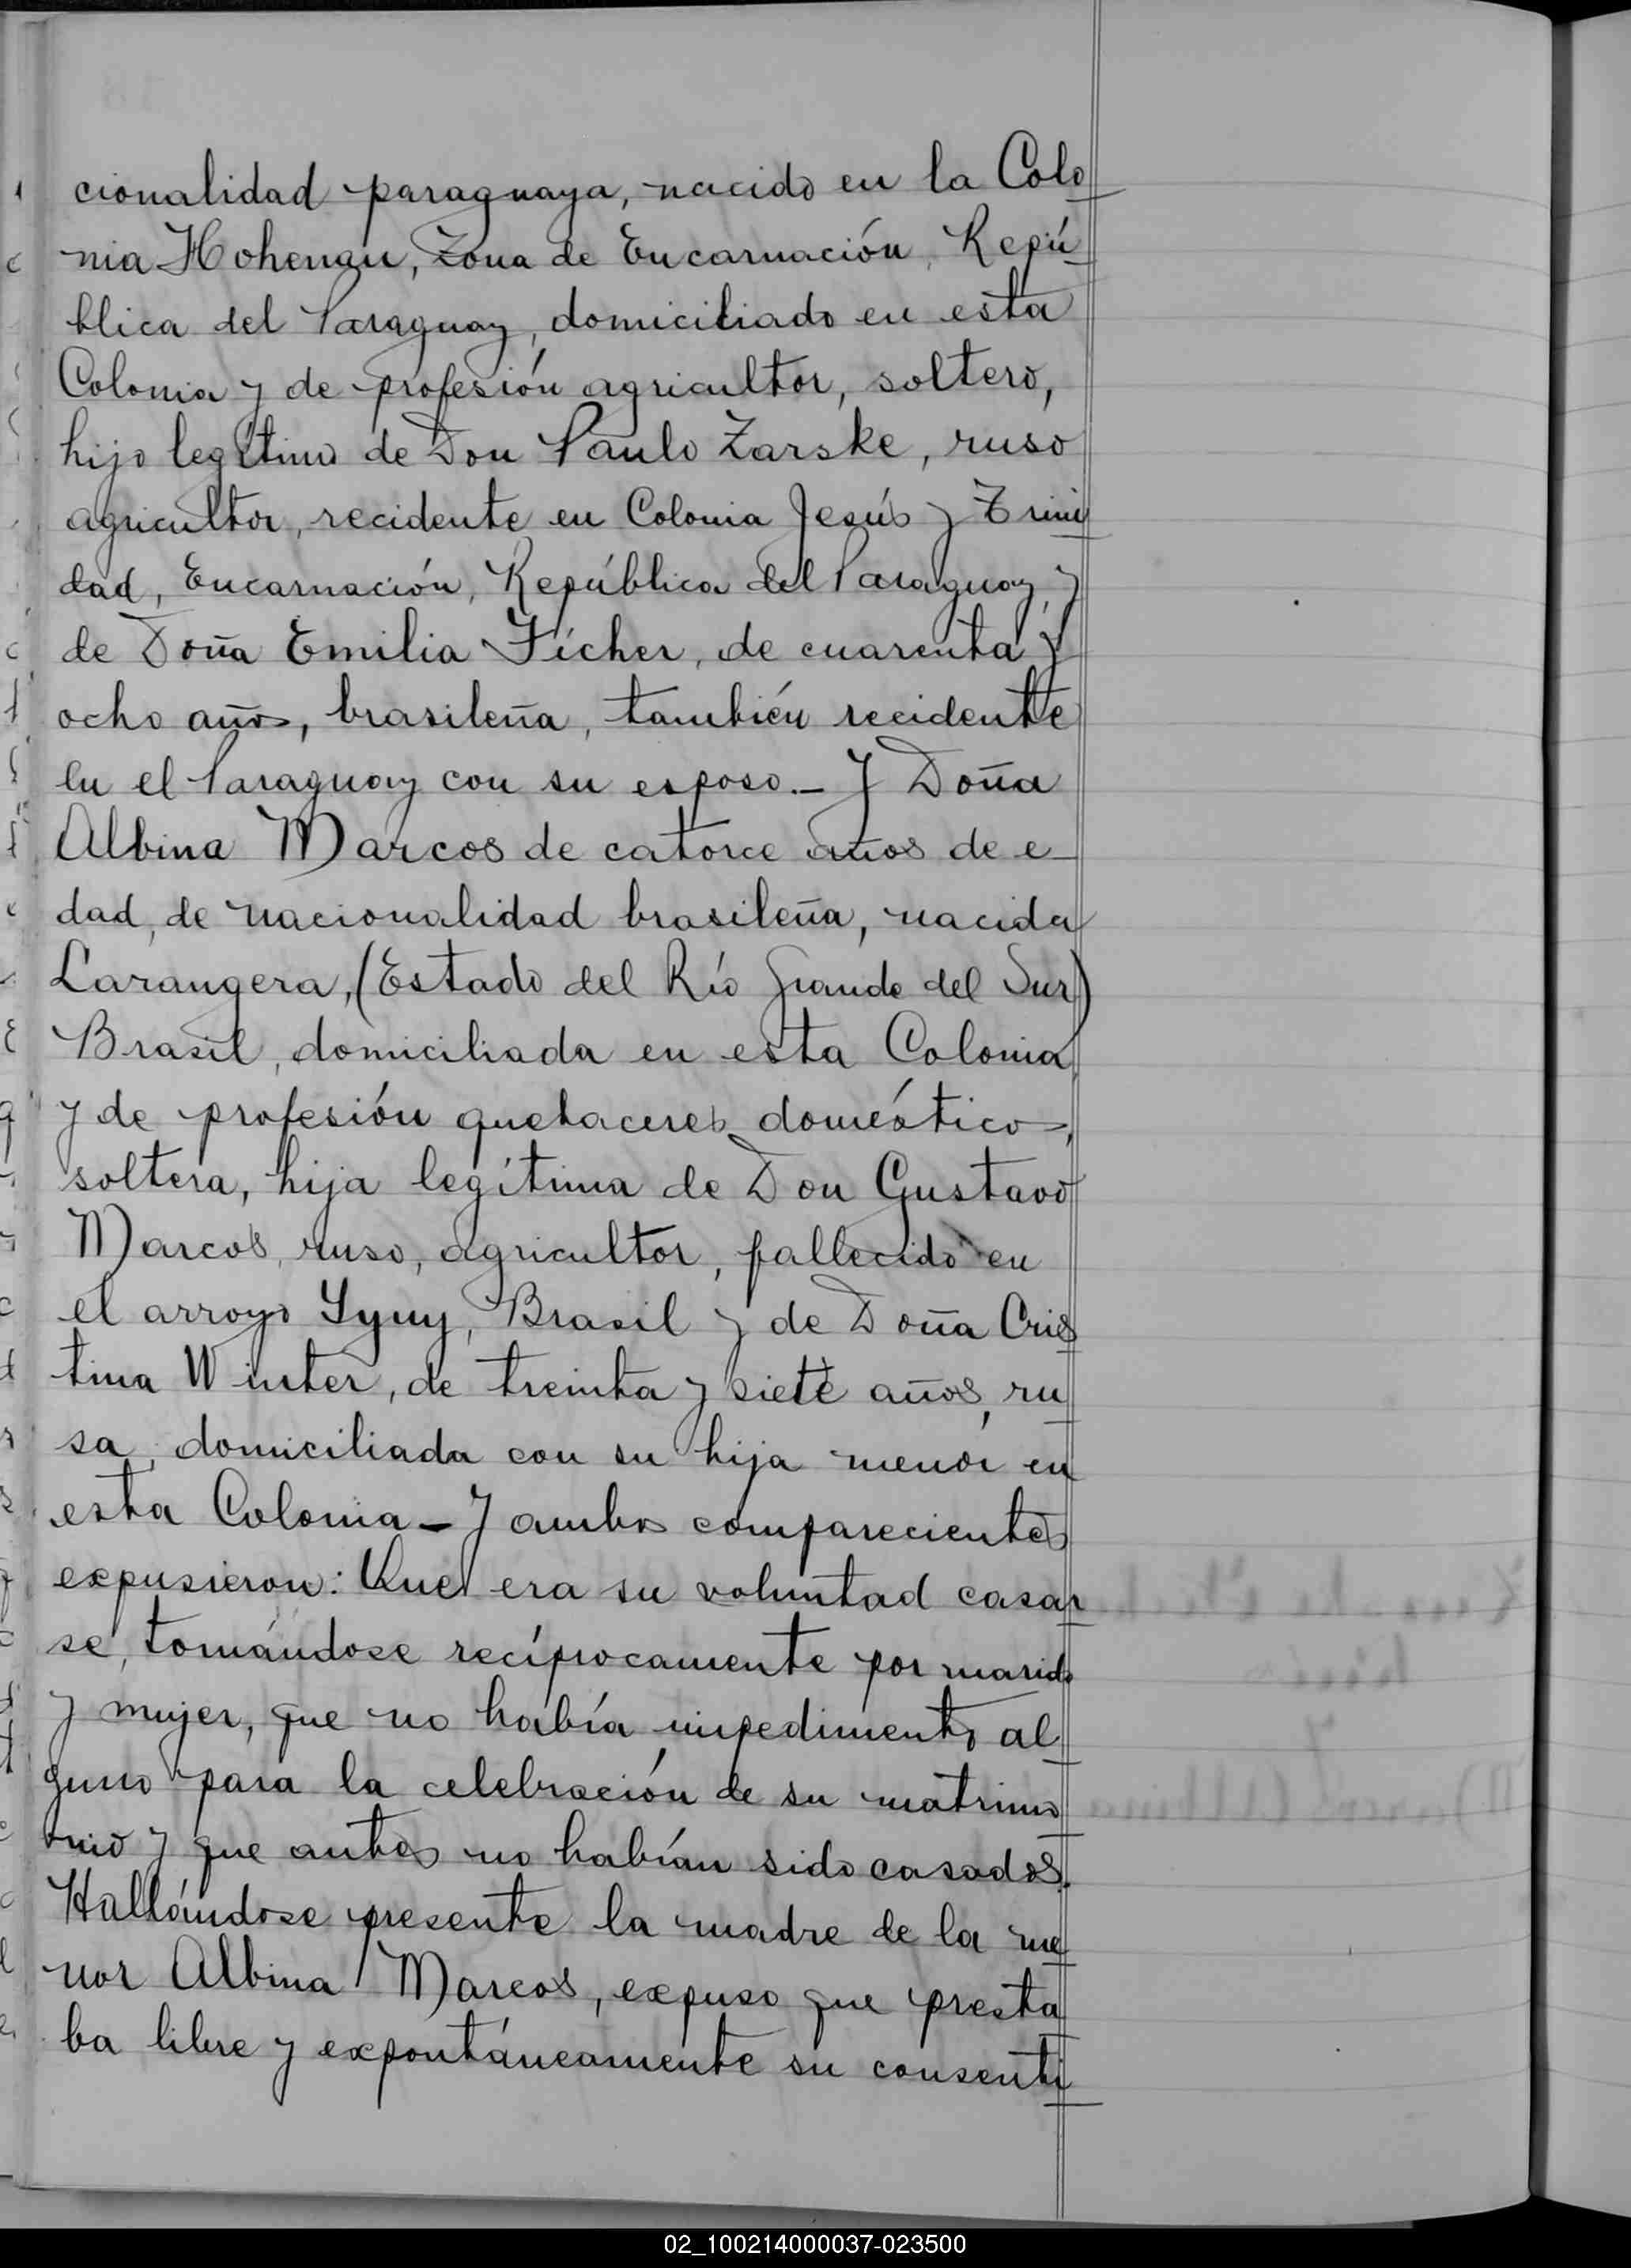 cionalidad paraguaya, nacido en la Colo
nia Hohenau, Zona de Encarnación, Repú
blica del Paraguay, domiciliado en esta
Colonia y de profesión agricultor, soltero,
hijo legítimo de Don Paulo Zarske, ruso
agricultor, recidente en Colonia Jesús y Trini
dad, Encarnación, República del Paraguay, y
de Doña Emilia Ficher, de cuarenta y
ocho años, brasileña, también recidente
en el Paraguay con su esposo.- Y Doña
Albina Marcos de catorce años de e
dad, de nacionalidad brasileña, nacida
Larangera, (Estado del Río Grande del Sur)
Brasil, domiciliada en esta Colonia,
y de profesión quehaceres doméstico,
soltera, hija legítima de Don Gustavo
Marcos, ruso, agricultor, fallecido en
el arroyo Yyuy, Brasil y de Doña Cris
tina Winter, de treinta y siete años, ru
sa, domiciliada con su hija menor en
esta Colonia - Y ambos comparecientes
expusieron: Que era su voluntad casar
se, tomándose recíprocamente por marido
y mujer, que no había impedimento al
guno para la celebración de su matrimo
nio y que antes no habían sido casados.
Hallándose presente la madre de la me
nor Albina Marcos, expuso que presta
ba libre y expontáneamente su consenti
02_100214000037-023500